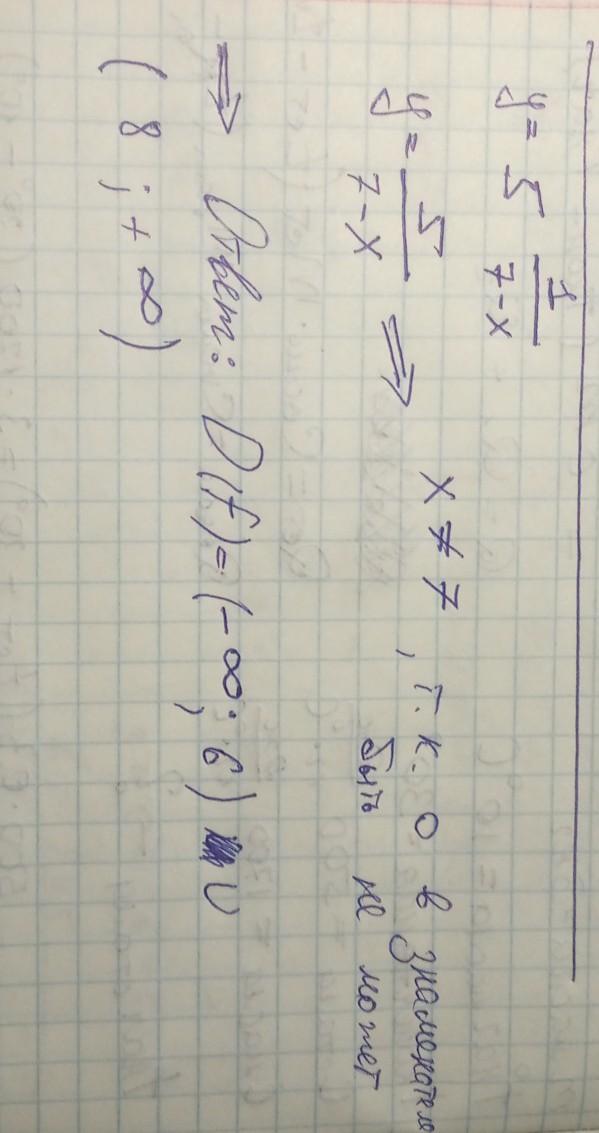 y = 5 1/(7-x)
y = 5/(7-x) ⇒ x ≠ 7, т.к. 0 в знаменателе
быть не может
⇒ Ответ: D(f) = (-∞; 6) ∪
(8; +∞)